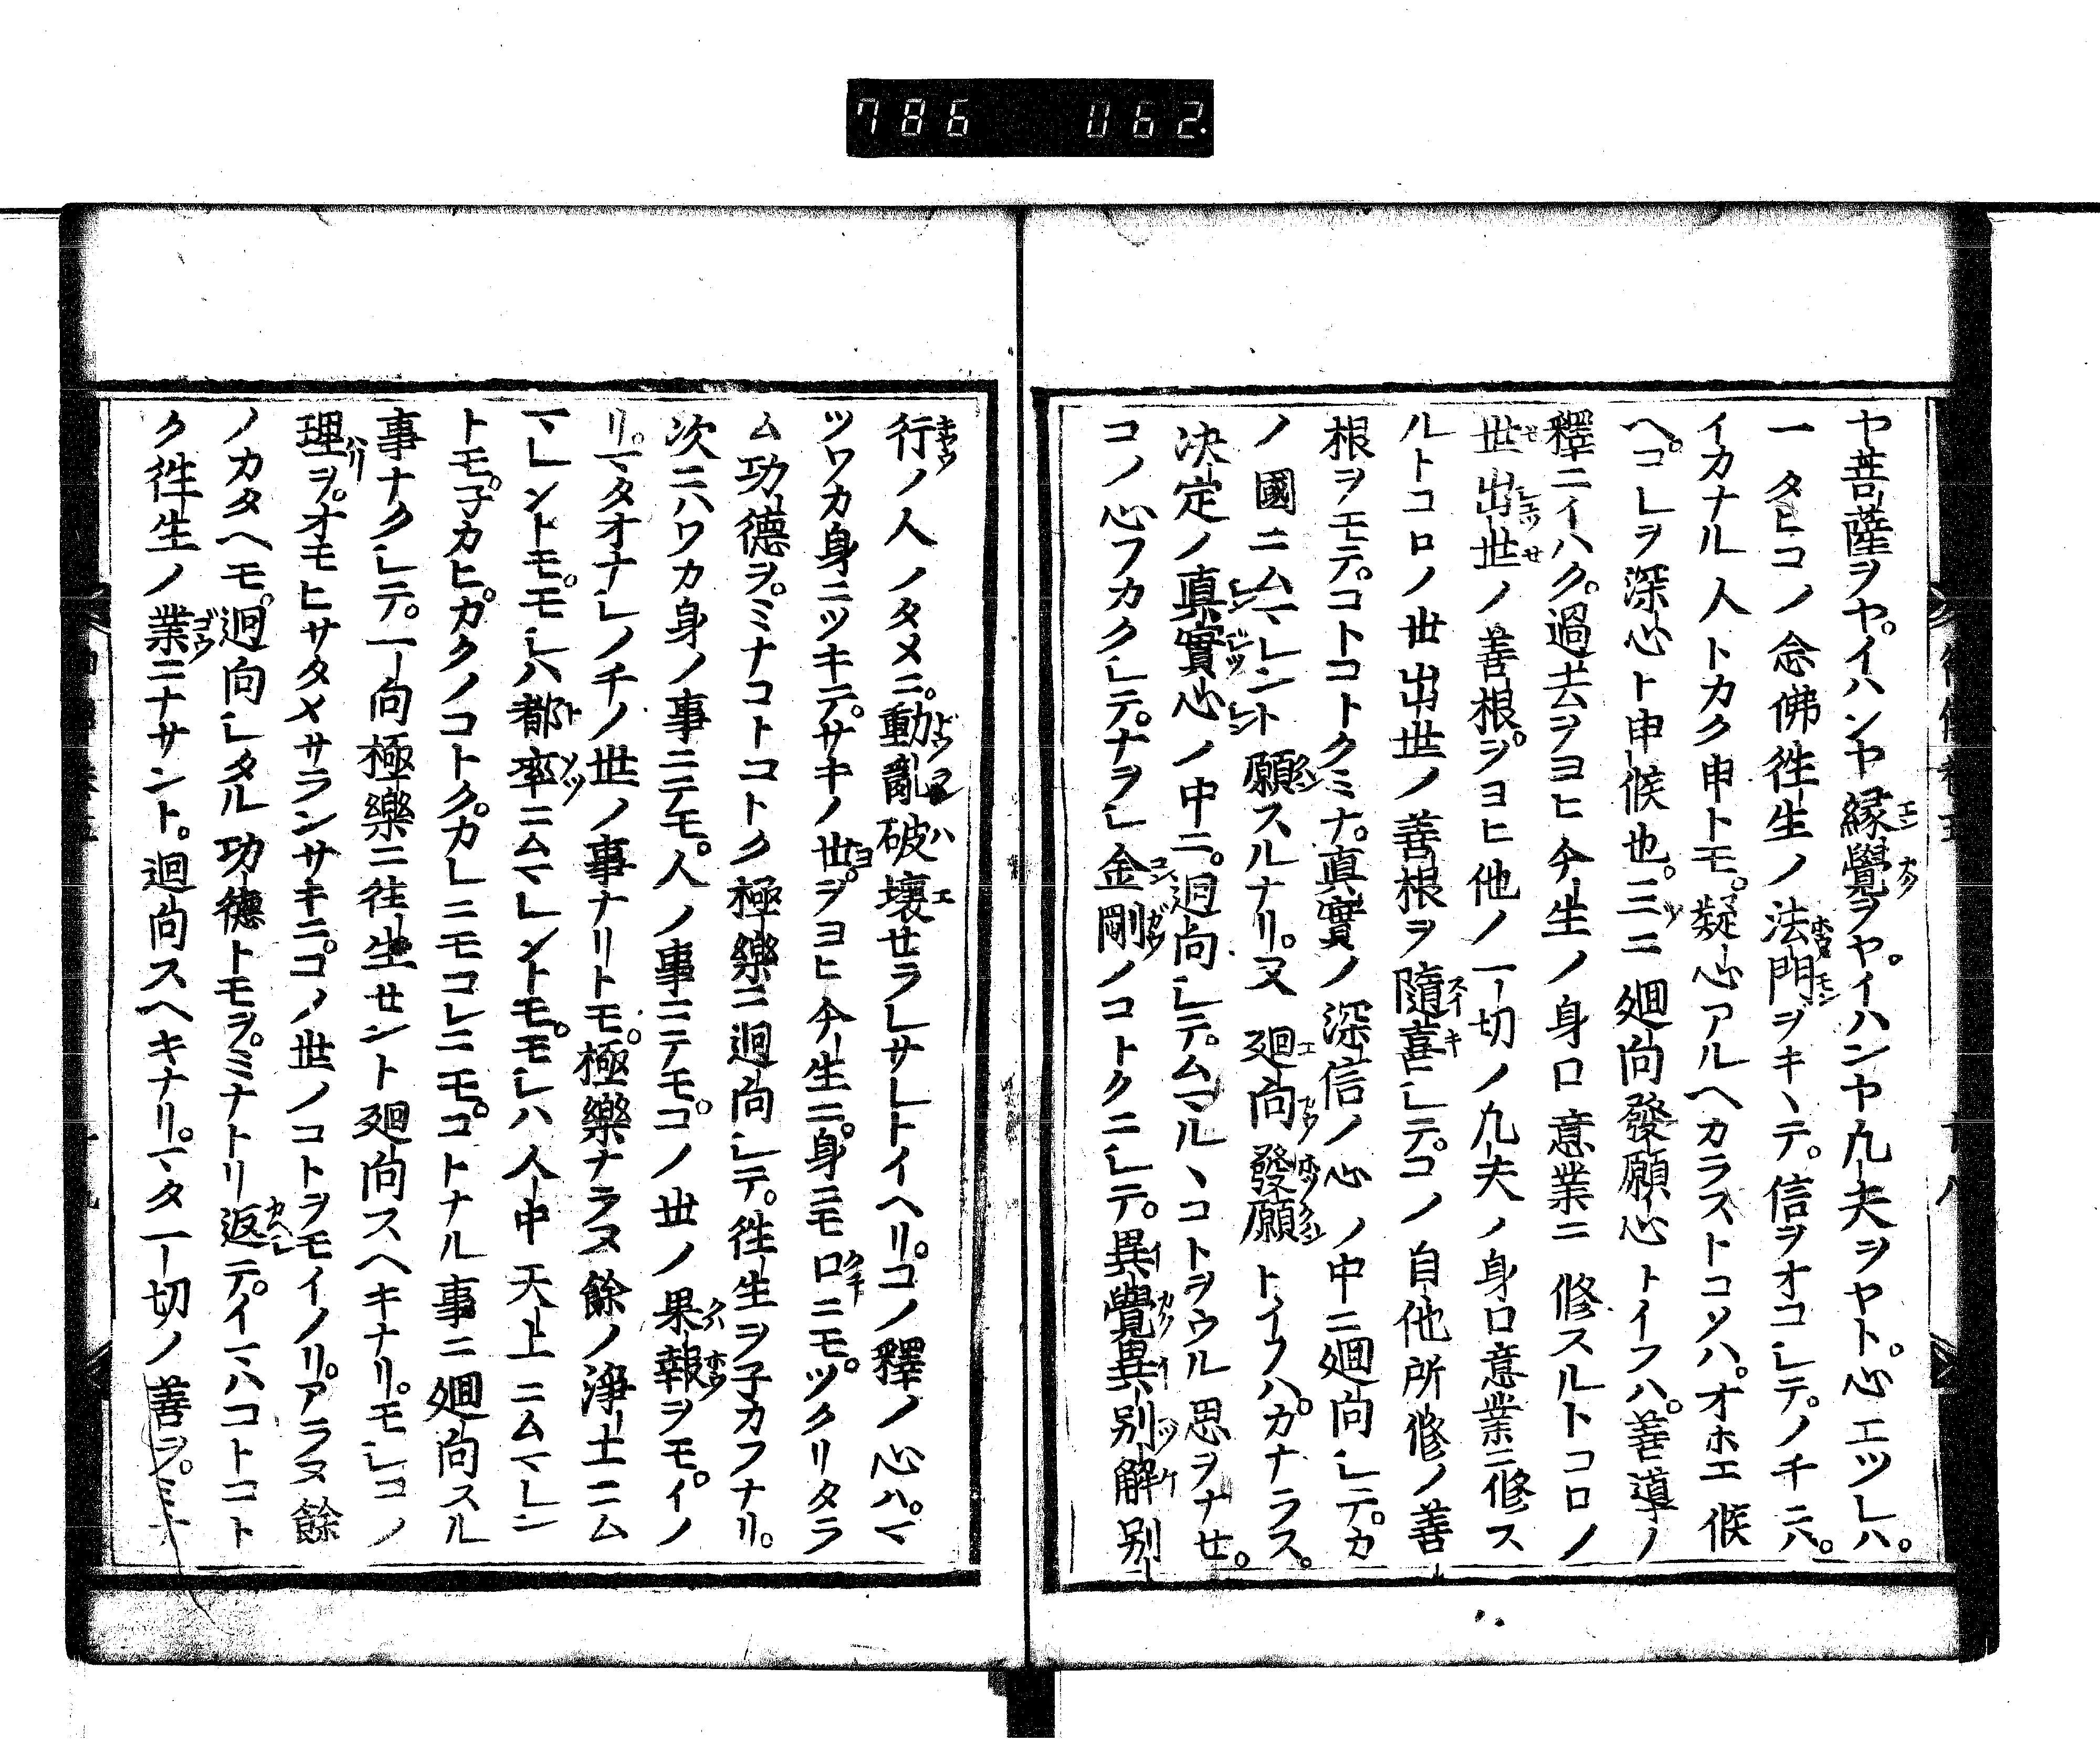 786 062
ヤ菩薩ヲヤ。イハンヤ縁覺ヲヤ。イハンヤ凡夫ヲヤト。心エツレハ。
一タヒコノ念佛往生ノ法門ヲキヽテ。信ヲオコシテノチニハ。
イカナル人トカク申トモ。疑心アルヘカラストコソハ。オホエ候
ヘ。コレヲ深心ト申候也。三ニ廻向發願心トイフハ。善導ノ
釋ニイハク。過去ヲヨヒ今生ノ身口意業ニ修スルトコロノ
世出世ノ善根。ヲヨヒ他ノ一切ノ凡夫ノ身口意業ニ修ス
ルトコロノ世出世ノ善根ヲ隨喜シテ。コノ自他所修ノ善
根ヲモテ。コトコトクミナ。真實ノ深信ノ心ノ中ニ廻向シテ。カ
ノ國ニムマレント願スルナリ。又廻向發願トイフハ。カナラス。
決定ノ真實心ノ中ニ。廻向シテ。ムマルヽコトヲウル思ヲナセ。
コノ心フカクシテ。ナヲシ金剛ノコトクニシテ。異覺異別解別
行ノ人ノタメニ。動亂破壞セラレサレトイヘリ。コノ釋ノ心ハ。マ
ツワカ身ニツキテ。サキノ世。ヲヨヒ今生ニ。身ニモ口ニモ。ツクリタラ
ム功德ヲ。ミナコトコトク極樂ニ廻向シテ。往生ヲ子カフナリ。
次ニハワカ身ノ事ニテモ。人ノ事ニテモ。コノ世ノ果報ヲモ。イノ
リ。マタオナシノチノ世ノ事ナリトモ。極樂ナラヌ餘ノ淨土ニム
マレントモ。モシハ都率ニムマレントモ。モシハ人中天上ニムマレン
トモ。子カヒ。カクノコトク。カレニモコレニモ。コトナル事ニ廻向スル
事ナクシテ。一向極樂ニ往生セント廻向スヘキナリ。モシコノ
理ヲ。オモヒサタメサランサキニ。コノ世ノコトヲモイノリ。アラヌ餘
ノカタヘモ。廻向シタル功德トモヲ。ミナトリ返テ。イマハコトコト
ク往生ノ業ニナサント。廻向スヘキナリ。マタ一切ノ善ヲ。ミナ